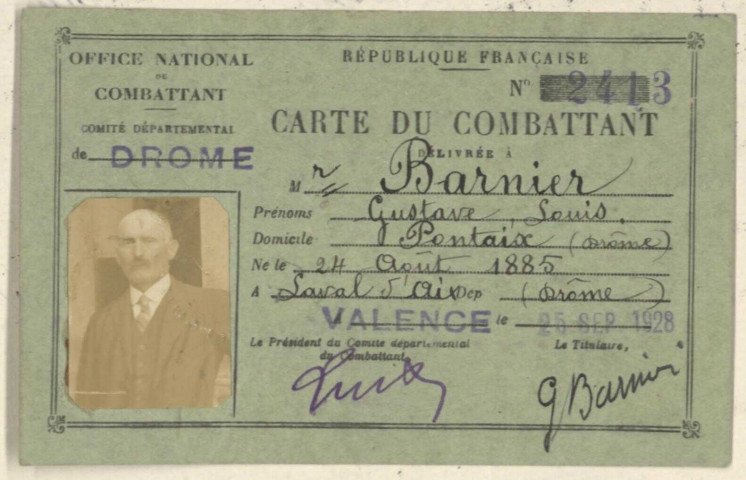 OFFICE NATIONAL
DU
COMBATTANT
COMITÉ DÉPARTEMENTAL
de DROME
RÉPUBLIQUE FRANÇAISE
N° 2413
CARTE DU COMBATTANT
DÉLIVRÉE À
Mr Barnier
Prénoms Gustave, Louis.
Domicile Pontaix (Drôme)
Né le 24 Août 1885
A Laval d'Aix Dep (Drôme)
VALENCE le 25 SEP. 1928
Le Président du Comité départemental
du Combattant,
Le Titulaire,
G Barnier